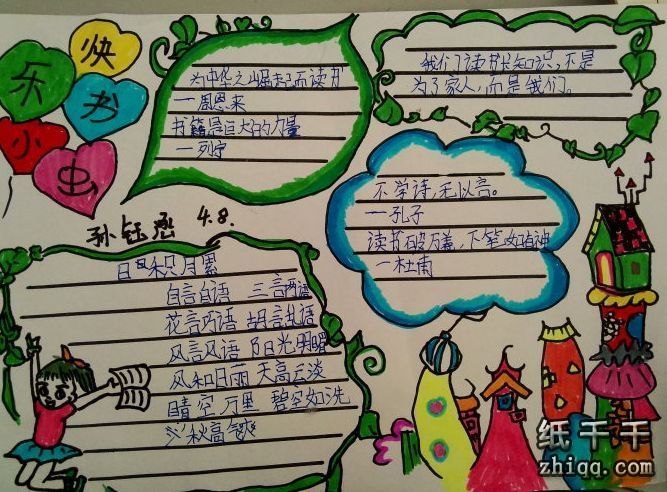 快
乐
书
小
虫
为中华之崛起而读书
—周恩来
书籍是巨大的力量
—列宁
我们读书长知识,不是
为了家人,而是我们。
不学诗,无以言。
—孔子
读书破万卷,下笔如有神
—杜甫
孙钰 4.8.
日积月累
自言自语 三言两语
花言巧语 胡言乱语
风言风语 阳光明媚
风和日丽 天高云淡
晴空万里 碧空如洗
秋高气爽
纸千千
zhiqq.com